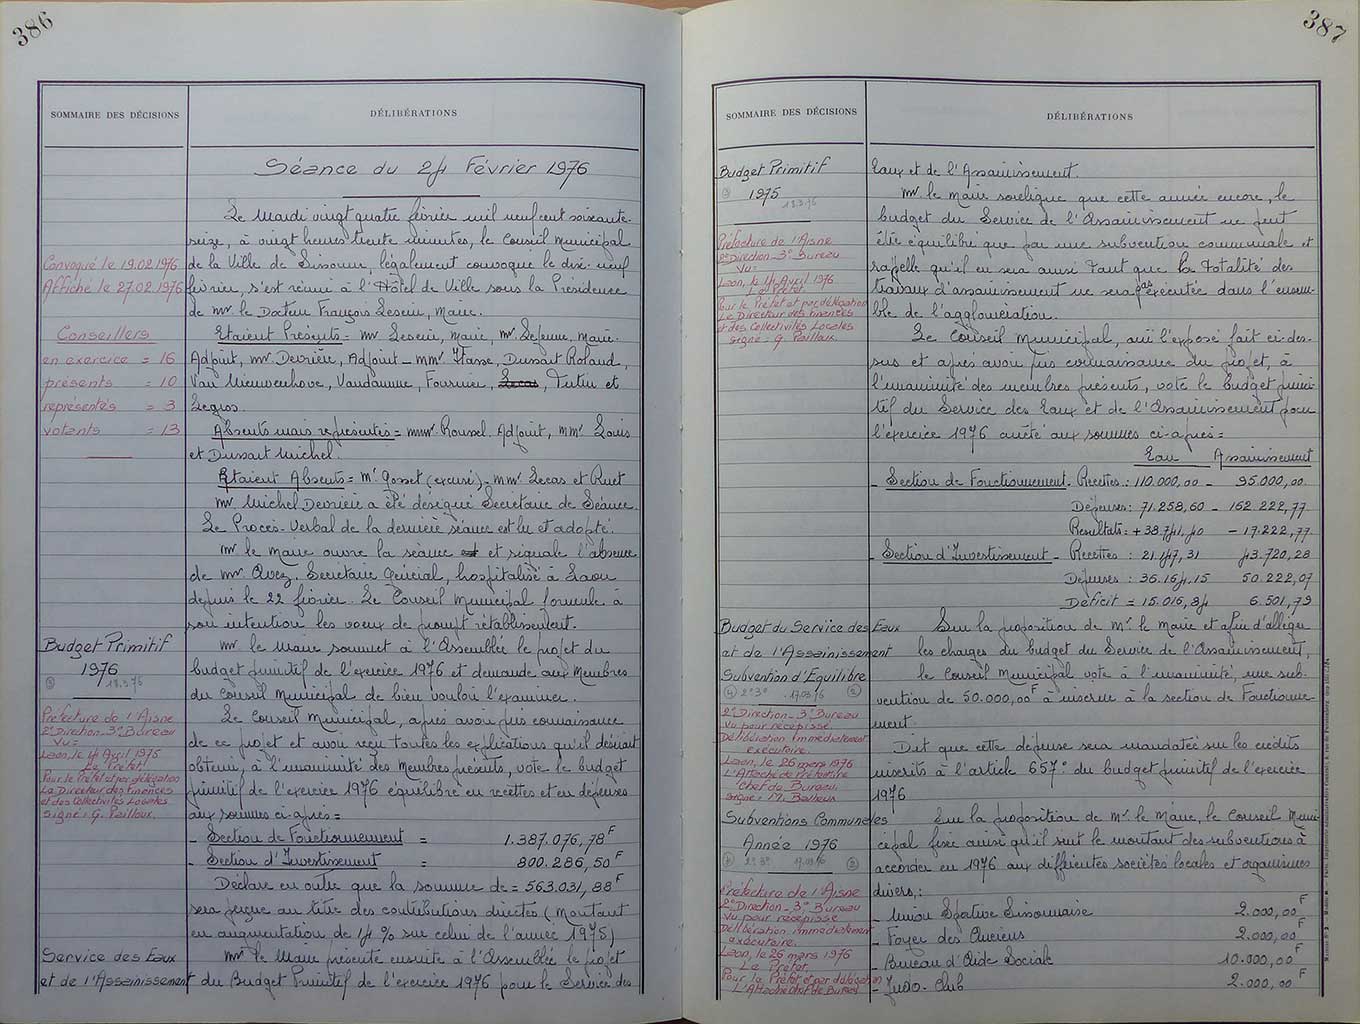 386
SOMMAIRE DES DÉCISIONS
DÉLIBÉRATIONS
Séance du 24 Février 1976
Le Mardi vingt quatre février mil neuf cent soixante-
seize, à vingt heures trente minutes, le Conseil Municipal
de la Ville de Sissonne, légalement convoqué le dix-neuf
février, s'est réuni à l'Hôtel de Ville sous la Présidence
de Mr. le Docteur François Leseur, Maire.
Convoqué le 19.02.1976
Affiché le 27.02.1976
Conseillers
en exercice = 16
présents = 10
représentés = 3
votants = 13
Etaient Présents = Mr Leseur, Maire, Mr. Lejeune, Maire-
Adjoint, Mr. Devrière, Adjoint - MMr. Hasse, Dussart Roland,
Van Nieuwenhove, Vandamme, Fournier, Lecas, Tutin et
Legros.
Absents mais représentés = MMr. Roussel. Adjoint, MMr. Louis
et Dussart Michel.
Etaient Absents = Mr Gosset (excusé) - MMr Lecas et Ruet
Mr Michel Devrière a été désigné Secrétaire de Séance.
Le Procès-Verbal de la dernière séance est lu et adopté.
Mr le Maire ouvre la séance et et signale l'absence
de Mr. Avez, Secrétaire Général, hospitalisé à Laon
depuis le 22 février. Le Conseil Municipal formule à
son intention les voeux de prompt rétablissement.
Budget Primitif
1976
③ 18.3.76
Mr. le Maire soumet à l'Assemblée le projet du
budget primitif de l'exercice 1976 et demande aux Membres
du Conseil Municipal de bien vouloir l'examiner.
Le Conseil Municipal, après avoir pris connaissance
de ce projet et avoir reçu toutes les explications qu'il désirait
obtenir, à l'unanimité des Membres présents, vote le budget
primitif de l'exercice 1976 équilibré en recettes et en dépenses
aux sommes ci-après =
Préfecture de l'Aisne
2e Direction - 3e Bureau
Vu =
Laon, le 14 Avril 1975
Le Préfet
Pour le Préfet et par délégation
La Directeur des Finances
et des Collectivités Locales
signé : G. Pailloux.
- Section de Fonctionnement = 1.387.076,78F
- Section d'Investissement = 800.286,50F
Déclare en outre que la somme de = 563.031,88F
sera perçue au titre des contributions directes (Montant
en augmentation de 14 % sur celui de l'année 1975)
Service des Eaux
et de l'Assainissement
Mr le Maire présente ensuite à l'Assemblée le projet
du Budget Primitif de l'exercice 1976 pour le Service des
387
SOMMAIRE DES DÉCISIONS
DÉLIBÉRATIONS
Budget Primitif
1975
③ 18.3.76
Eaux et de l'Assainissement.
Mr. le Maire souligne que cette année encore, le
budget du Service de l'Assainissement ne peut
être équilibré que par une subvention communale et
rapelle qu'il en sera ainsi tant que la totalité des
travaux d'assainissement ne sera pas exécutée dans l'ensem-
ble de l'agglomération.
Préfecture de l'Aisne
2e Direction - 3e Bureau
Vu =
Laon, le 14 Avril 1976
Le Préfet
Pour le Préfet et par délégation
Le Directeur des Finances
et des Collectivités Locales
signé : G. Pailloux
Le Conseil Municipal, ouï l'exposé fait ci-des-
sus et après avoir pris connaissance du projet, à
l'unanimité des membres présents, vote le budget primi-
tif du Service des Eaux et de l'Assainissement pour
l'exercice 1976 arrêté aux sommes ci-après =
Eau Assainissement
- Section de Fonctionnement - Recettes : 110.000,00 - 95.000,00
Dépenses : 71.258,60 - 152.222,77
Résultats = +38.741,40 - 17.222,77
- Section d'Investissement - Recettes : 21.147,31 43.720,28
Dépenses : 36.164,15 50.222,07
Déficit = 15.016,84 6.501,79
Budget du Service des Eaux
et de l'Assainissement
Subvention d'Equilibre
④ 2e 3e 17.03.76 ②
Sur la proposition de Mr. le Maire et afin d'alléger
les charges du budget du Service de l'Assainissement,
le Conseil Municipal vote à l'unanimité, une sub-
vention de 50.000,00F à inscrire à la section de Fonctionne-
ment.
2e Direction - 3e Bureau
Vu pour récépissé
Délibération immédiatement
exécutoire.
Laon, le 26 mars 1976
L'Attaché de Préfecture
Chef du Bureau
Signé : M. Balleux
Dit que cette dépense sera mandatée sur les crédits
inscrits à l'article 657° du budget primitif de l'exercice
1976
Subventions Communales
Année 1976
2e 3e 17.03.76 ②
Sur la proposition de Mr. le Maire, le Conseil Muni-
cipal fixe ainsi qu'il suit le montant des subventions à
accorder en 1976 aux différentes sociétés locales et organismes
divers :
Préfecture de l'Aisne
2e Direction - 3e Bureau
Vu pour récépissé
Délibération immédiatement
exécutoire.
Laon, le 26 mars 1976
Le Préfet
Pour le Préfet et par délégation
L'Attaché Chef de Bureau
- Union Sportive Sissonnaise 2.000,00F
- Foyer des Anciens 2.000,00F
- Bureau d'Aide Sociale 10.000,00F
- Judo-Club 2.000,00F